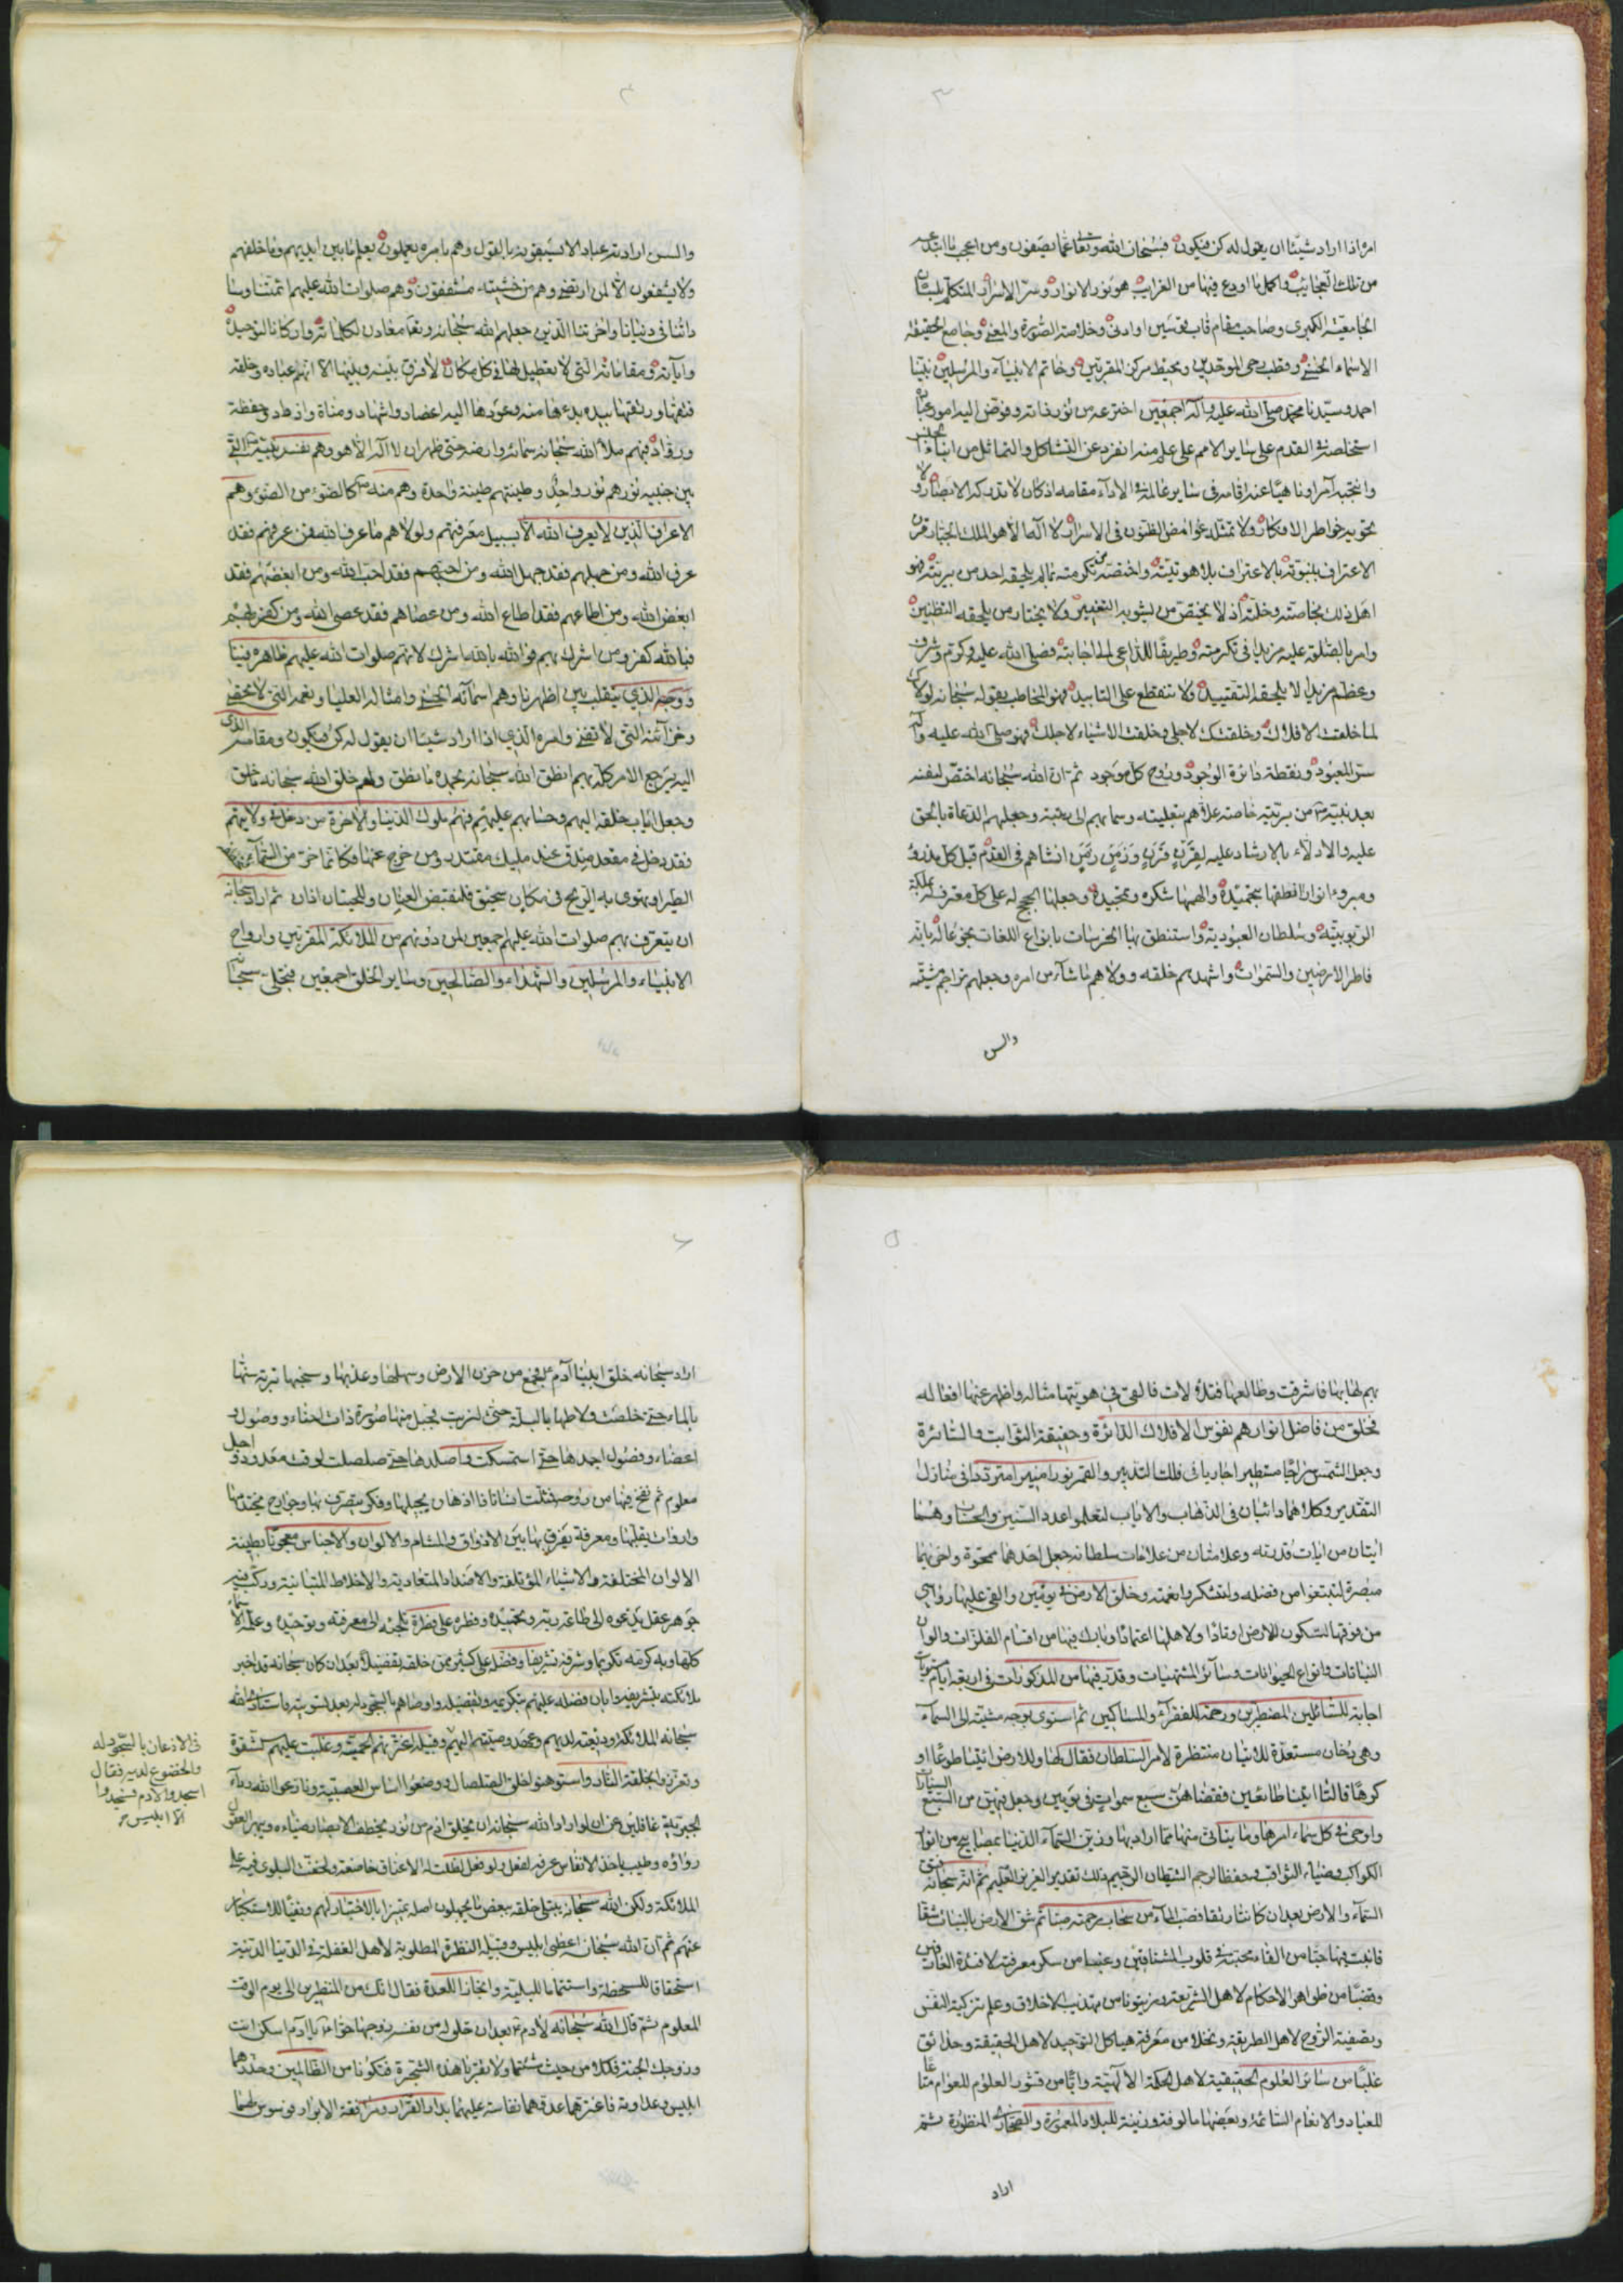 ٣
امره اذا اراد شيئا ان يقول له كن فيكون فسبحان الله وتعالى عما يصفون ومن اعجب ما ابتدعه
من تلك العجايب واكمل ما اودع فيها من الغرايب هو نور الانوار وسر الاسرار المتكلم بلسان
الجامعية الكبرى وصاحب مقام قاب قوسين او ادنى وخلاصة الصورة والمعنى وجامع الحقيقة
الاسماء الحسنى وقطب رحى الموحدين ومحيط مركز المقربين وخاتم الانبياء والمرسلين نبينا
احمد وسيدنا محمد صلى الله عليه وآله اجمعين اخترعه من نور ذاته وفوض اليه امور عباده
استخلصه في القدم على ساير الامم على علم منه انفرد عن التشاكل والتماثل من ابناء الجنس
وانتجبه آمرا وناهيا عنه اقامه في ساير عالمه في الاداء مقامه اذ كان لا تدركه الابصار ولا
تحويه خواطر الافكار ولا تمثله غوامض الظنون في الاسرار لا اله الا هو الملك الجبار قرن
الاعتراف بنبوته بالاعتراف بلاهوتيته واختصه من تكرمته بما لم يلحقه احد من بريته فهو
اهل ذلك بخاصته وخلته اذ لا يختص من يشوبه التغيير ولا يختار من يلحقه التظنين
وامر بالصلوة عليه مزيدا في تكرمته وطريقا للداعي الى اجابته فصلى الله عليه وكرم وشرف
وعظم مزيدا لا يلحقه التفنيد ولا ينقطع على التابيد فهو المخاطب بقوله سبحانه لولاك
لما خلقت الافلاك وخلقتك لاجلي وخلقت الاشياء لاجلك فهو صلى الله عليه وآله
سر المعبود ونقطة دائرة الوجود وروح كل موجود ثم ان الله سبحانه اختص لنفسه
بعد نبيه ص من بريته خاصة علاهم بتعليته وسما بهم الى رتبته وجعلهم الدعاة بالحق
عليه والادلاء بالارشاد عليه لقرن قرن وزمن زمن انشاهم في القدم قبل كل مذروء
ومبروء انوارا انطقها بتحميده والهمها شكره وتمجيده وجعلها الحجج له على كل معترف له بملكة
الربوبية وسلطان العبودية واستنطق بها الخرسات بانواع اللغات بخوعا له بانه
فاطر الارضين والسموات واشهدهم خلقه وولاهم ما شاء من امره وجعلهم تراجم مشيته
والس
٤
والسن ارادته عبادا لا يسبقونه بالقول وهم بامره يعملون يعلم ما بين ايديهم وما خلفهم
ولا يشفعون الا لمن ارتضى وهم من خشيته مشفقون وهم صلوات الله عليهم ائمتنا وسا
داتنا في دنيانا واخرتنا الذين جعلهم الله سبحانه وتعا معادن لكلماته واركانا لتوحيده
وآياته ومقاماته التي لا تعطيل لها في كل مكان لا فرق بينه وبينها الا انهم عباده وخلقه
فتقها ورتقها بيده بدءها منه وعودها اليه اعضاد واشهاد ومناة واذواد وحفظة
ورواد فبهم ملأ الله سبحانه سمائه وارضه حتى ظهر ان لا اله الا هو وهم نفس نبيه ص التي
بين جنبيه نورهم نور واحد وطينتهم طينة واحدة وهم منه ص كالضوء من الضوء وهم
الاعراف الذين لا يعرف الله الا بسبيل معرفتهم ولولاهم ما عرف الله فمن عرفهم فقد
عرف الله ومن جهلهم فقد جهل الله ومن احبهم فقد احب الله ومن ابغضهم فقد
ابغض الله ومن اطاعهم فقد اطاع الله ومن عصاهم فقد عصى الله ومن كفر بهم
فبالله كفر ومن اشرك بهم فو الله بالله اشرك لانهم صلوات الله عليهم ظاهره فينا
ووجهه الذي يتقلب بين اظهرنا وهم اسمآئه الحسنى وامثاله العليا ونعمه التي لا تحصى
وخزآئنه التي لا تفنى وامره الذي اذا اراد شيئا ان يقول له كن فيكون ومقامه الذي
اليه يرجع الامر كله بهم انطق الله سبحانه بحمده ما نطق ولهم خلق الله سبحانه ما خلق
وجعل اياب خلقه اليهم وحسابهم عليهم فهم ملوك الدنيا والآخرة من دخل في ولايتهم
فقد دخل في مقعد صدق عند مليك مقتدر ومن خرج عنها فكانما خر من السماء فتخطفه
الطير او تهوى به الريح في مكان سحيق فلتقتض العينان وللحيتان اذان ثم اراد سبحانه
ان يتعرف بهم صلوات الله عليهم اجمعين لمن دونهم من الملائكة المقربين وارواح
الانبياء والمرسلين والشهداء والصالحين وساير الخلق اجمعين فتجلى سبحانه
٥
بهم لها بها فاشرقت وطالعها فتلألأت فالقى في هويتها مثاله واظهر عنها افعاله
فخلق من فاضل انوارهم نفوس الافلاك الدائرة وحقيقة الثوابت والسائرة
وجعل الشمس سراجا مستطيرا جاريا في فلك التدبير والقمر نورا منيرا مترددا في منازل
التقدير وكلاهما دائبان في الذهاب والاياب لتعلموا عدد السنين والحساب وهما
ايتان من ايات قدرته وعلامتان من علامات سلطانه جعل احدهما ممحوة واخريهما
مبصرة لتبتغوا من فضله ولتشكروا نعمته وخلق الارض في يومين والقى عليها رواسي
من فوقها لتكون للارض اوتادا ولاهلها اعتمادا وبارك فيها من اقسام الفلزات والوان
النباتات وانواع الحيوانات وسائر المشتهيات وقدر فيها من المذكورات في اربعة ايام
اجابة للسائلين المضطرين ورحمة للفقراء والمساكين ثم استوى بوجه مشيته الى السمآء
وهي دخان مستعدة للاتيان منتظرة لامر السلطان فقال لها وللارض ائتيا طوعا او
كرها قالتا اتينا طائعين فقضاهن سبع سموات في يومين وجعل فيهن من السبع السيارات
واوحى في كل سماء امرها وما يتاتى منها مما اراد بها وزين السمآء الدنيا بمصابيح من انوار
الكواكب وضياء الثواقب وحفظا لرجم الشيطان الرجيم ذلك تقدير العزيز العليم ثم انه سبحانه فتق
السمآء والارض بعد ان كانتا رتقا فصب المآء من سحاب رحمته صبا ثم شق الارض بالنبات شقا
فانبت فيها حبا من القاء محبته في قلوب المشتاقين وعنبا من سكر معرفته لافئدة العارفين
وقضبا من ظواهر الاحكام لاهل الشريعة وزيتونا من تهذيب الاخلاق وعلم تزكية النفس
وتصفية الروح لاهل الطريقة ونخلا من معرفة هياكل التوحيد لاهل الحقيقة وحدائق
غلبا من سائر العلوم الحقيقية لاهل الحكمة الالهية وابا من قشور العلوم للعوام متاعا
للعباد والانعام السائمة وبعضها مالوفة وزينة للبلاد المعمورة والصحارى المنظورة ثم
اراد
٦
اراد سبحانه خلق ابينا آدم ع فجمع من حزن الارض وسهلها وعذبها وسبخها تربة سنها
بالماء حتى خلصت ولاطها بالبلة حتى لزبت فجبل منها صورة ذات احناء ووصول و
اعضاء وفصول اجمدها حتى استمسكت واصلدها حتى صلصلت لوقت معدود و اجل
معلوم ثم نفخ فيها من روحه فمثلت انسانا ذا اذهان يجيلها وفكر يتصرف بها وجوارح يختدمها
وادوات يقلبها ومعرفة يفرق بها بين الاذواق والمشام والالوان والاجناس معجونا بطينة
الالوان المختلفة والاشياء المؤتلفة والاضداد المتعادية والاخلاط المتباينة وركب فيه
جوهر عقل يدعوه الى طاعة ربه وتحميده وفطره على فطرة تلجئه الى معرفته وتوحيده وعلمه الاسماء
كلها وبه كرمه تكريما وشرفه تشريفا وفضل على كثير ممن خلقه تفضيلا بعد ان كان سبحانه قد اخبر
ملائكته بتشريفه وابان فضله عليهم بتكريمه وتفضيله واوصاهم بالسجود له بعد تسويته فاستأدى الله
سبحانه الملائكة وديعته لديهم وعهد وصيته اليهم وقبيله اعترتهم الحمية وغلبت عليهم الشقوة
في الاذعان بالسجود له
والخضوع لديه فقال
اسجدوا لآدم فسجدوا
الا ابليس
وتعززوا بخلقة النار واستوهنوا خلق الصلصال ووضعوا اساس العصبية ونازعوا الله رداء
الجبرية غافلين عن ان لو اراد الله سبحانه ان يخلق آدم من نور يخطف الابصار ضياءه ويبهر العقول
رواؤه وطيب ياخذ الانفاس عرفه لفعل ولو فعل لظلت له الاعناق خاضعة ولخفت البلوى فيه على
الملائكة ولكن الله سبحانه يبتلى خلقه ببعض ما يجهلون اصله تمييزا بالاختبار لهم ونفيا للاستكبار
عنهم ثم ان الله سبحانه اعطى ابليس وقبيله النظرة المطلوبة لاهل الغفلة في الدنيا الدنية
استحقاقا للسخطة واستتماما للبلية وانجازا للعدة فقال انك من المنظرين الى يوم الوقت
المعلوم ثم قال الله سبحانه لآدم ع بعد ان خلق له من نفسه زوجها حوآء يا آدم اسكن انت
وزوجك الجنة فكلا من حيث شئتما ولا تقربا هذه الشجرة فتكونا من الظالمين وحذرهما
ابليس وعداوته فاغترهما عدوهما نفاسة عليهما بدار القرار ومرافقة الابرار فوسوس لهما